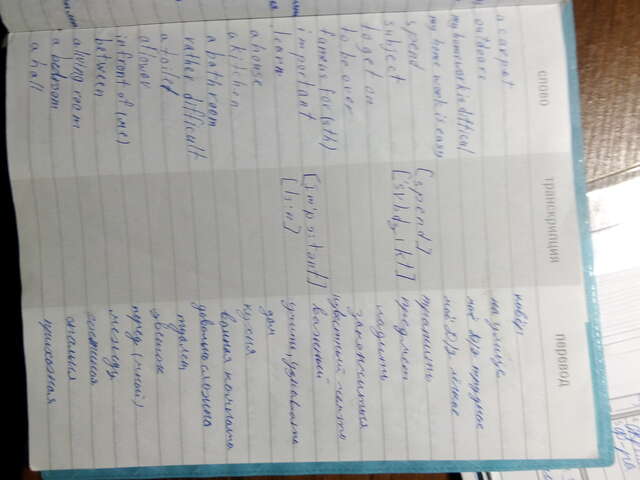 слово транскрипция перевод
a carpet ковёр
outdoors на улице
my homework is diffical моё д/р трудное
my home work is easy моё д/р лёгкое
spend [spend] тратить
subject предмет
to get on ладить
to be over закончиться
famous for (sth)
important важный
learn учить, узнавать
a house дом
a kitchen кухня
a bathroom ванная комната
rather difficult довольно сложно
a toilet туалет
a flower цветок
in front of (me) перед (мной)
between между
a living room гостиная
a bedroom спальня
a hall прихожая